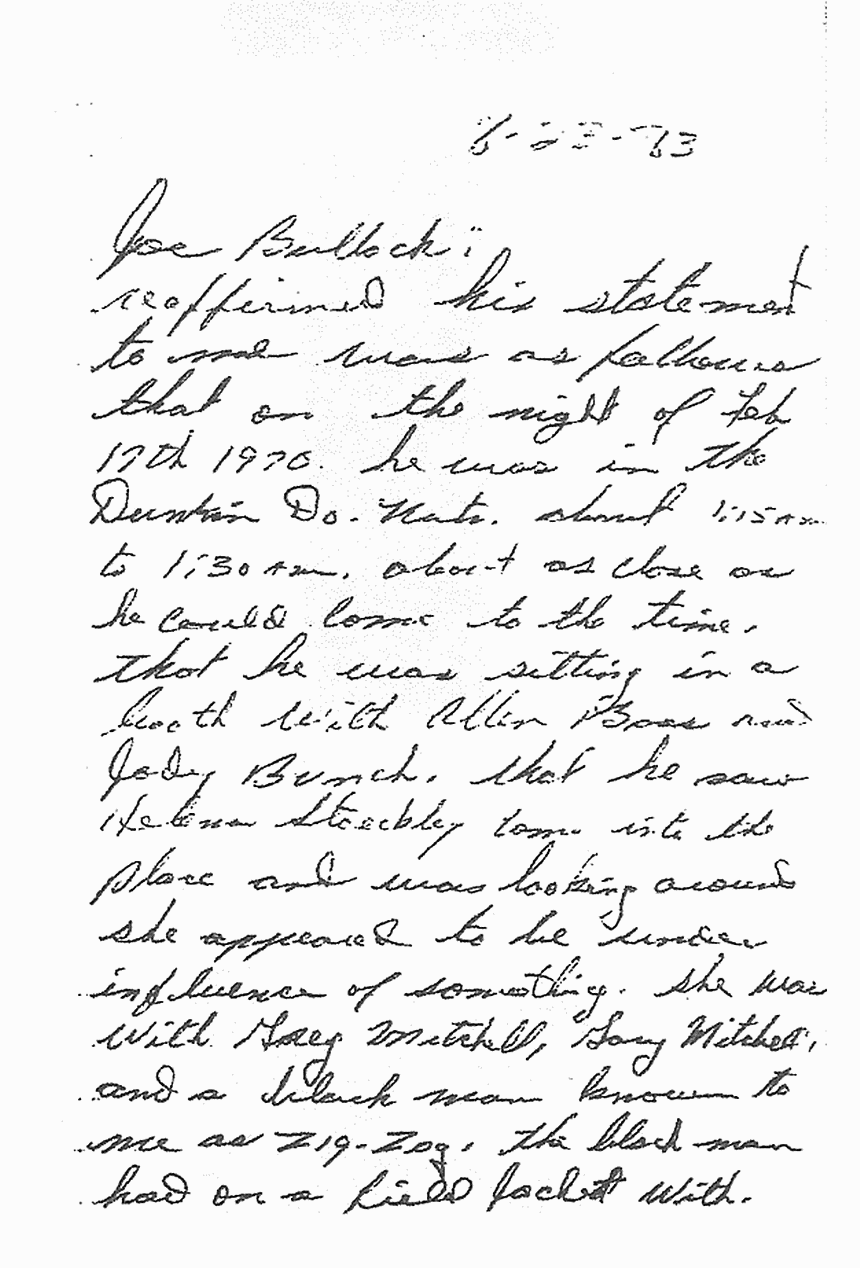 8-23-83
Joe Bullock:
reaffirmed his statement
to me was as follows
that on the night of Feb
17th 1970. he was in the
Dunkin Do. Nuts. about 1:15 AM
to 1:30 AM. about as close as
he could come to the time.
that he was sitting in a
booth with Allen and
Jody Bunch. that he saw
Helena Stoeckley come into the
place and was looking around
she appeared to be under
influence of something. she was
with Greg Mitchell, Gary Mitchell,
and a black man known to
me as Zig-Zog. the black man
had on a field Jacket with.